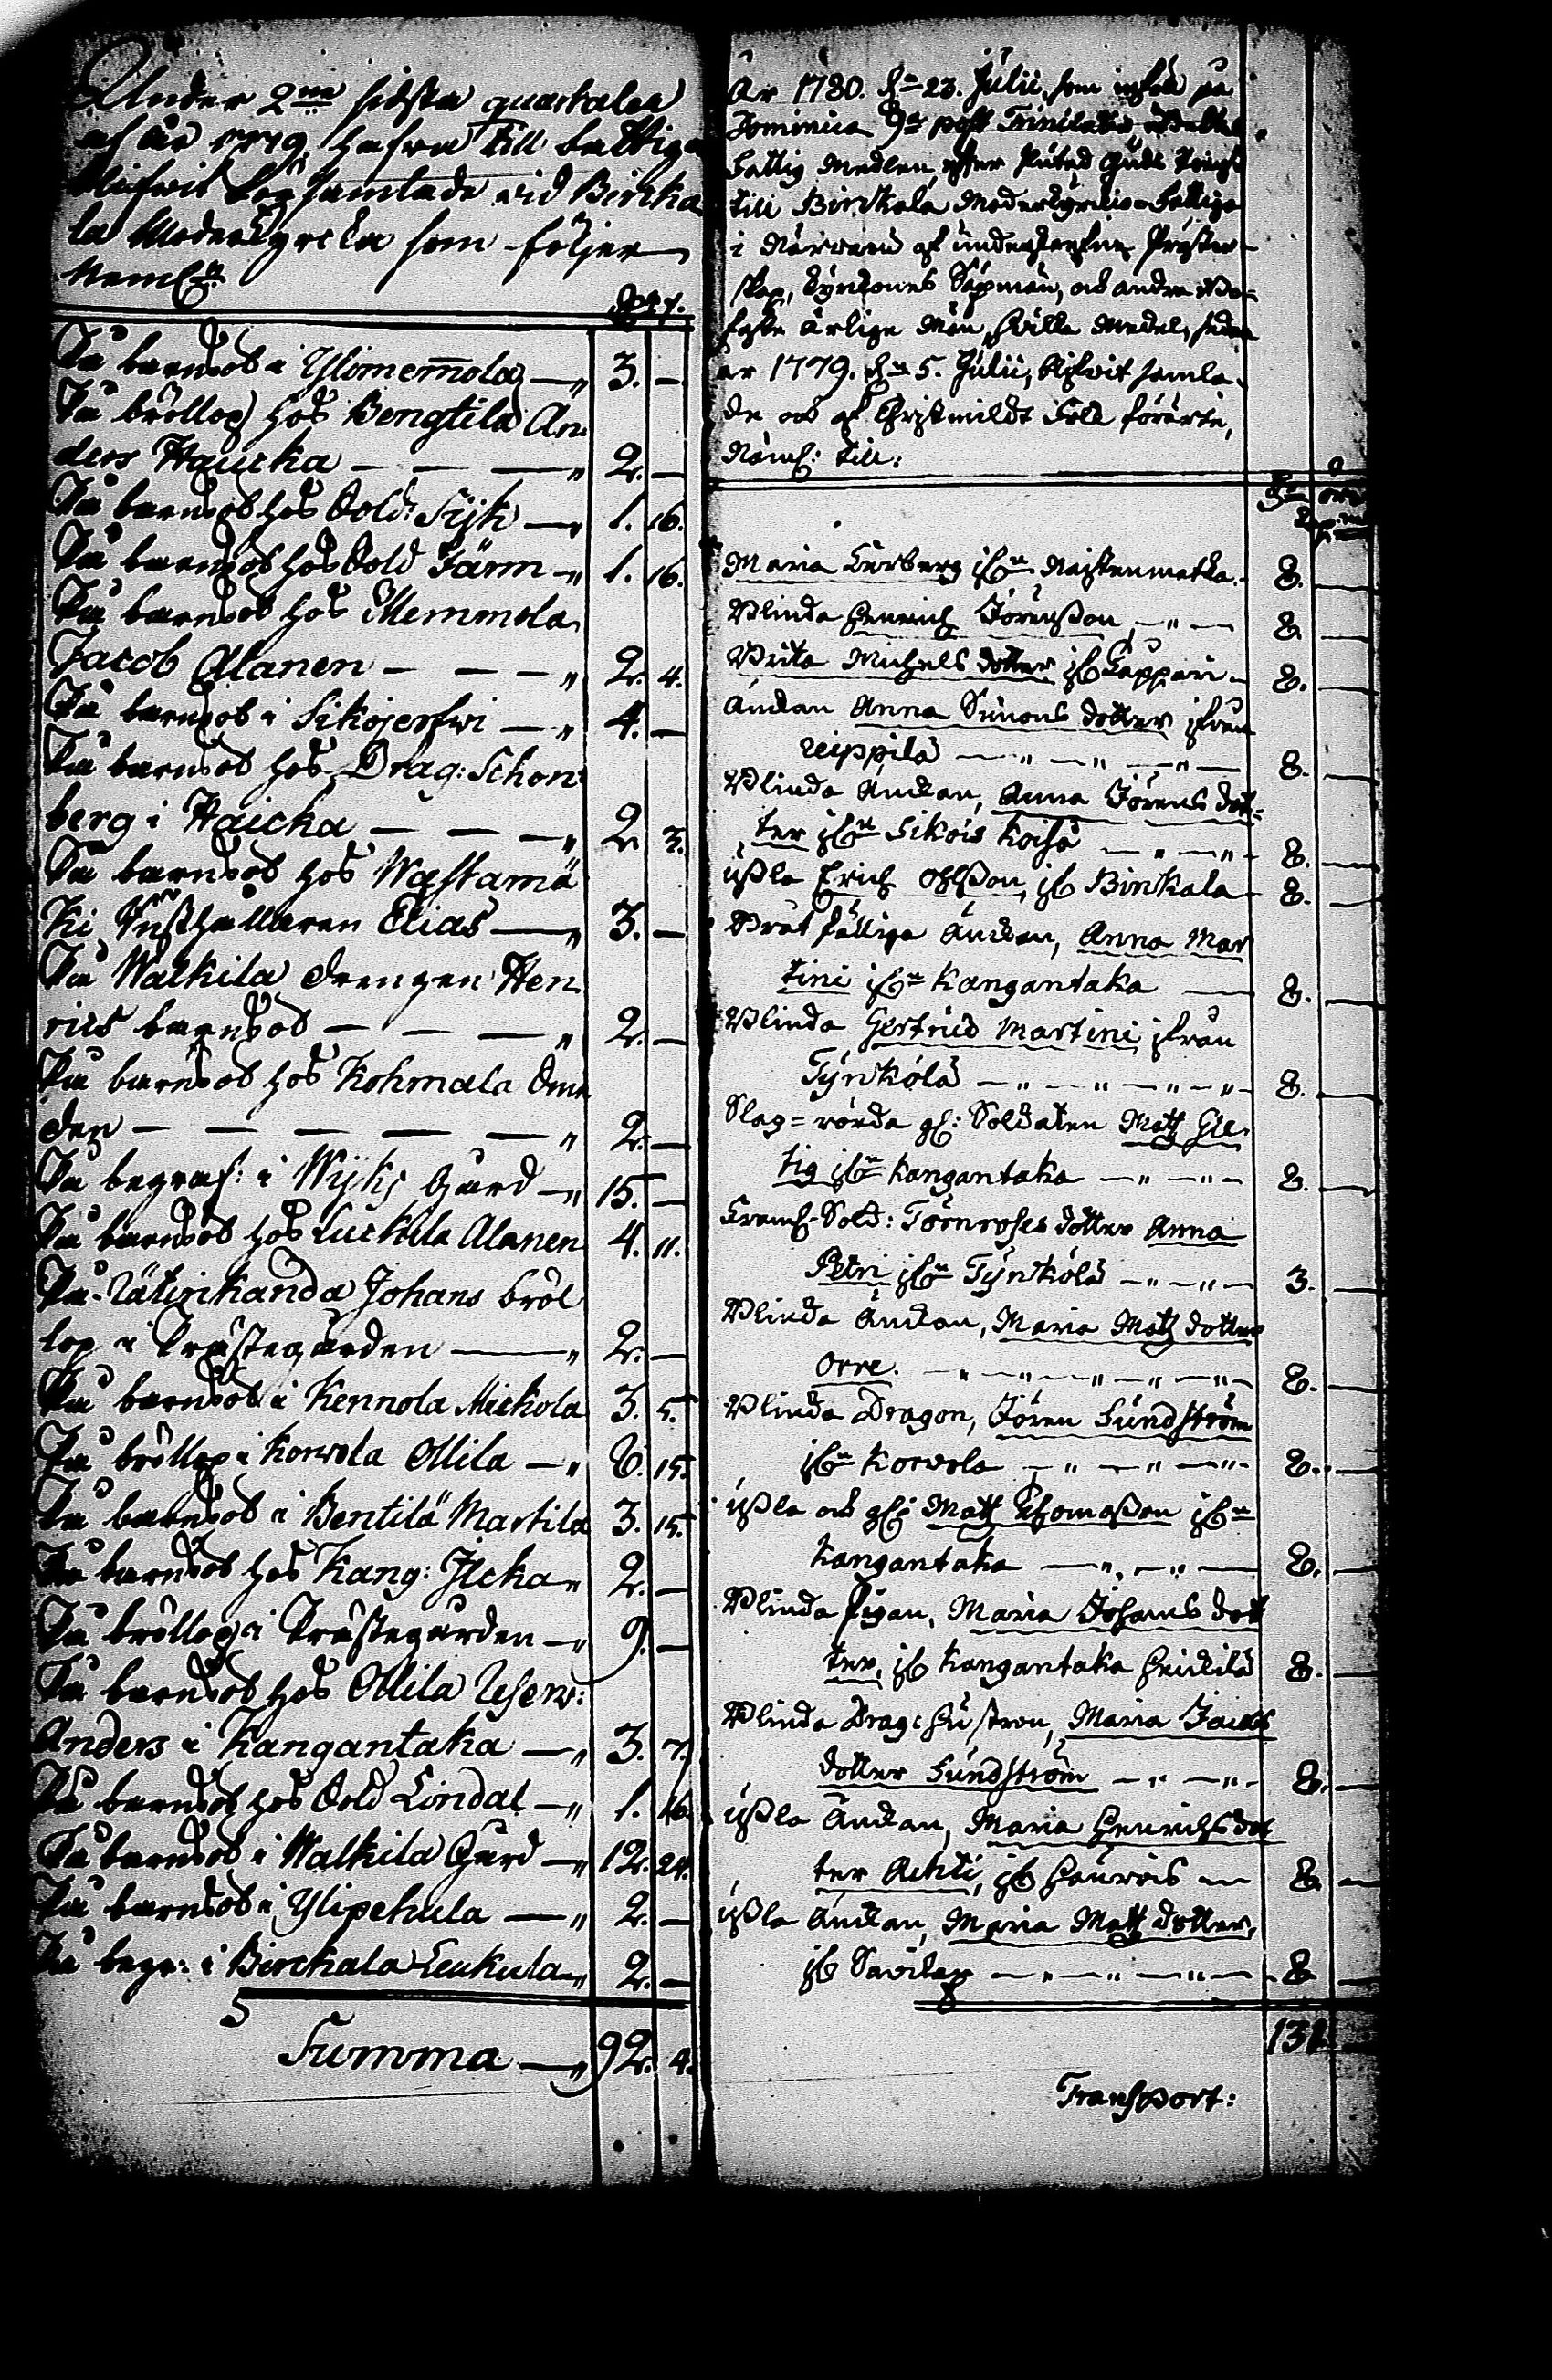 Under 2ne sidsta quartalen
af år 1779, hafva till Fattiga
blifvit hop samlade vid Birka
la Moderkyrcka som följer
Neml:n
På barndop i Ylönemola —„ 3. —
På bröllop hos Bengtilä An
ders Haucka — — —„ 2. —
På barndop hos Sold: Sijk —„ 1. 16.
På barndop hos Sold Järn —„ 1. 16.
På barndop hos Memmola
Jacob Alanen — — —„ 2. 4.
På barndop i Sikojerfwi —„ 4. —
På barndop hos Drag: Schon
berg i Haicka — — —„ 2. 3.
På barndop hos Wastamä
ki Elias —„ 3. —
På Walkila drengen Hen
rics barndop — — —„ 2. —
På barndop hos Kohmala
den — — — — —„ 2. —
På begraf: i Wijks Gård —„ 15. —
På barndop hos Luckila Alanen 4. 11.
På Lätinkanda Johans bröl
lop i Prästegården —„ 2. —
På barndop i Kennola Mickola 3. 5.
På bröllop i Korvola Ollila —„ 6. 15.
På barndop i Bentilä Martila 3. 15.
På barndop hos Kang: Ilcka „ 2. —
På bröllop i Prästegården —„ 9. —
På barndop hos Ollila Reserv:
Anders i Kangantaka —„ 3. 7.
På barndop hos Sold Lindal —„ 1. 16.
På barndop i Walkila Gård —„ 12. 24.
På barndop i Ylipehula —„ 2. —
På begr: i Birckala Leukula „ 2. —
Summa —„ 92. 4.
År 1780. d:n 23. Julii, som inföll på
Dominica 9:na post Trinitatis utdeltes
Fattig Medlen, efter slutad Guds tienst
till Birkala Moderkyrkio-Fattige
i närvaro af underskrefne Präster
skap, Kyrkones Sexmän, och andre Bo-
faste ärlige Män, hvilka Medel, sedan
år 1779. d:n 5. Julii, blifvit samla-
de och af Christmildt Folk förärte,
Näml: till:
Maria Kerberg if:n Naistenmatka. 8. —
Blinda Henrich Jörensson —„— 8. —
Brita Michels dotter if: Kappari 8. —
Änckan Anna Simons dotter ifrån
Reippilä —„—„—„— 8. —
Blinda Änckan, Anna Jörens dot=
ter if:n Sikois Koiso —„—„ 8. —
Usla Erich Ohlsson, if: Birkala 8. —
Bråtfällige Änckan, Anna Mar
tini if:n Kangantaka — 8. —
Blinda Gertrud Martini, ifrån
Tynkölä —„—„—„—„ 8. —
Slag=rörda gl: Soldaten Matz Gle
tig if:n Kangantaka —„—„— 8. —
Sold: Törnroses dotter Anna
Petri if:n Tynkölä —„—„— 3. —
Blinda Änckan, Maria Matz dotter
Orre. —„—„—„—„—„ 8. —
Blinda Dragon, Jören Sundström
if:n Korvola —„—„—„ 8. —
Usla och gl: Matz Thomasson if:n
Kangantaka —„—„— 8. —
Blinda Pigan, Maria Johans dot
ter, if: Kangantaka Heickilä 8. —
Blinda Drag: Hustron, Maria Jacobs
dotter Sundström —„—„ 8. —
Usla Änckan, Maria Henrichs dot
ter Achti, if: Haurois — 8. —
Usla Änckan, Maria Matz dotter,
if: Savilax —„—„—„— 8. —
131
Transport: